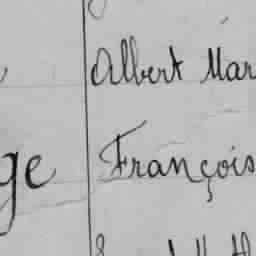 Albert Mar
ge François